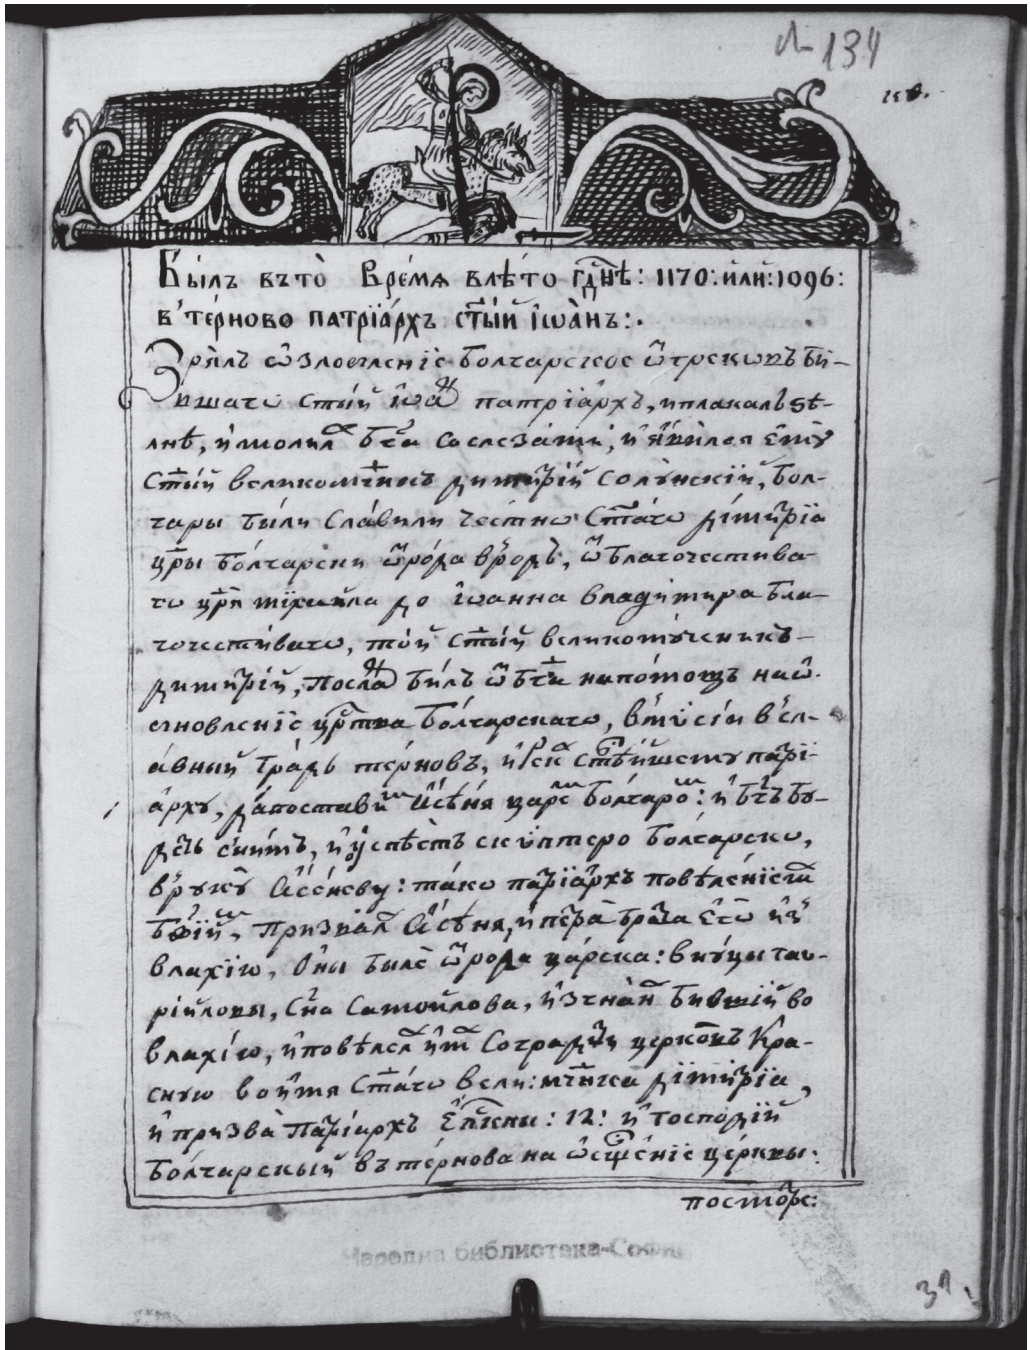 № 134
Бы́лъ въто̀ Вре́мѧ влѣ́то гдⷭ҇нѣ: 1170: и҆лѝ: 1096:
в' те́рново патрїа́рхъ ст҃ы́й і҆ѡа́нъ:.
Зрѧлъ ѡ҆злобленїе болгарское ѿгрековъ би-
вшаго ст҃ый і҆ѡа́н патрїа́рхъ, и плакалъ ѕѣ-
лнѣ, и҆ молилсѧ бг҃а со слеза́ми, и҆ ꙗ҆ви́лсѧ е҆мꙋ̀
ст҃ы́й великомч҃нкъ дими́трїй солꙋ́нскїй, бол-
гары бы́ли сла́вили честно ст҃а́го дими́трїа
цр҃ы бо́лгарски ѿро́да вро́дъ, ѿблагочестива-
го цр҃ѧ михаи́ла до і҆ѡанна владимира бла-
гочести́ваго, то́й ст҃ы́й великомꙋ́ченикъ
дими́трїй, посланъ би́лъ ѿ бг҃а напо́мощъ наѡ҆-
бновленїе црⷭ҇тва бо́лгарскаго, вмѷсїи всл-
а́вный гра́дъ те́рновъ, и҆ рекл ст҃ѣ́йшему патрї-
а́рху, да поставит а҆сѣ́нѧ царем бо́лгаром: и҆ бг҃ъ бꙋ-
детъ снимъ, и҆ ꙋ҆спѣетъ скѵптро бо́лгарско,
врꙋкꙋ̀ а҆се́невꙋ: тако патрїа́рхъ повѣле́нїем
бж҃їим, призвал а҆сѣ́нѧ, и҆ петра бра́та е҆гѡ̀ и҆з
влахїю, ѻ҆ны былѐ ѿрода ца́рска: внꙋцы гав-
рїи́ловы, сн҃а самои́лова, и҆згна́н бившїй во
влахі́ю, и҆ повѣлел и҆м согради́ти церковъ кра-
сную во и҆мѧ ст҃а́го вели: мч҃нка дими́трїа,
и҆ призва патрїархъ е҆пⷭ҇кпы: 12: и҆ господїй
бо́лгарскый въ те́рнова на ѡ҆сщ҃е́нїе це́рквы:
постро́е:
Народна библиотека-София
31